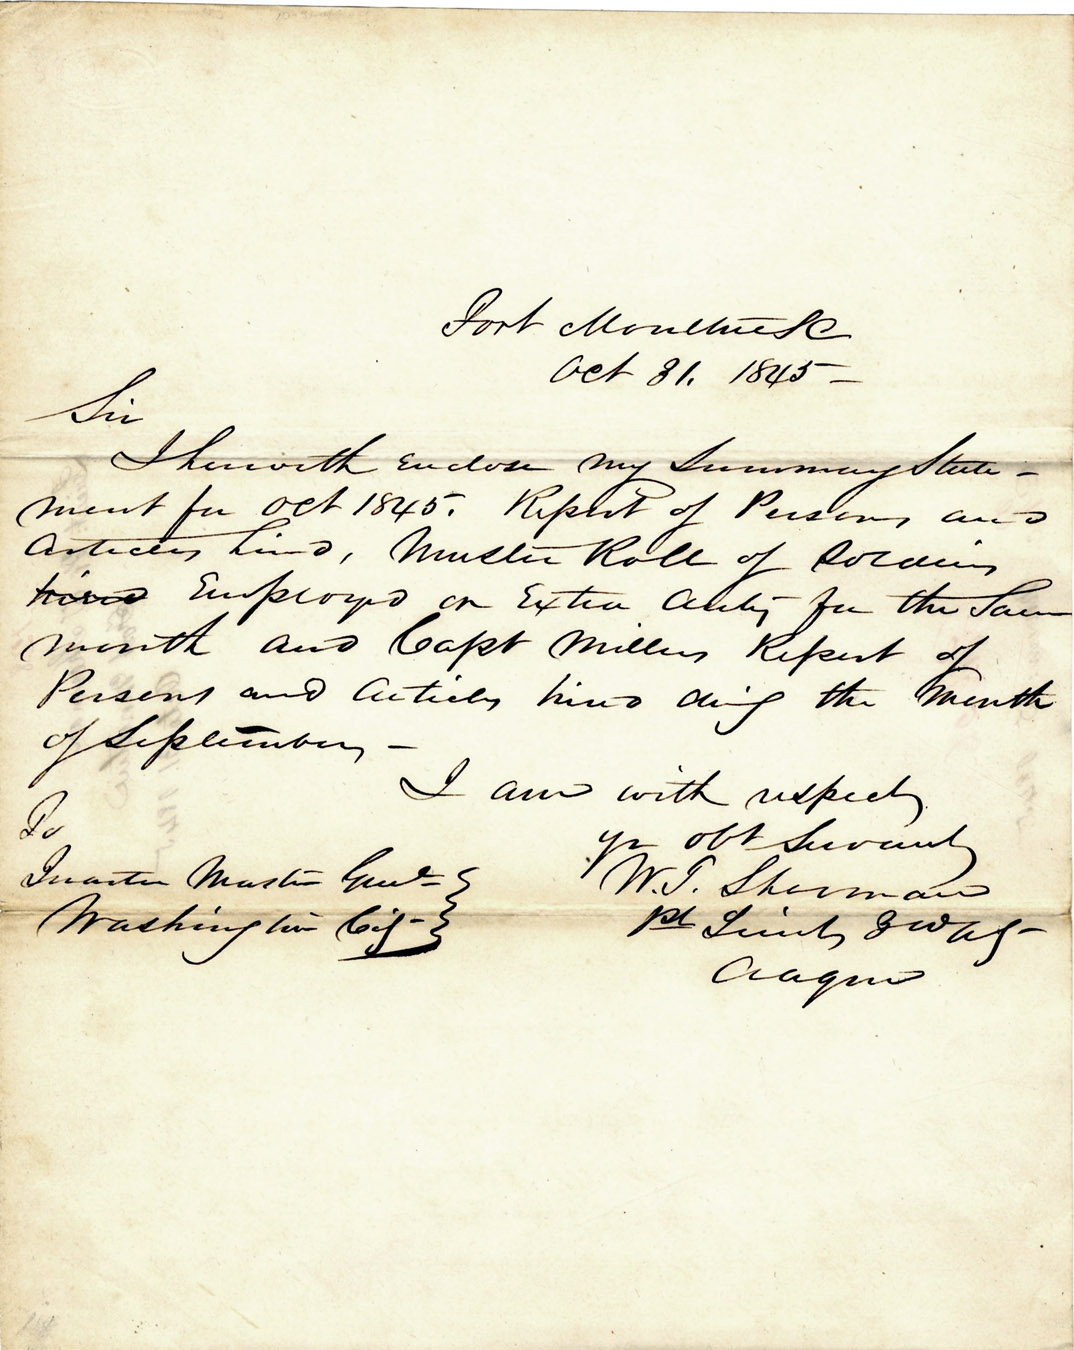 Fort Moultrie SC
Oct 31. 1845 –
Sir
I herewith enclose my Summary State-
ment for Oct 1845. Report of Persons and
Articles hired, Muster Roll of Soldiers
hired Employed on Extra duty for the Same
month and Capt Millers Report of
Persons and Articles hired during the Month
of September, –
I am with respect,
yr obt Servant,
W. T. Sherman
1st Lieut, 3rd Arty
To
Quarter Master Genl
Washington City